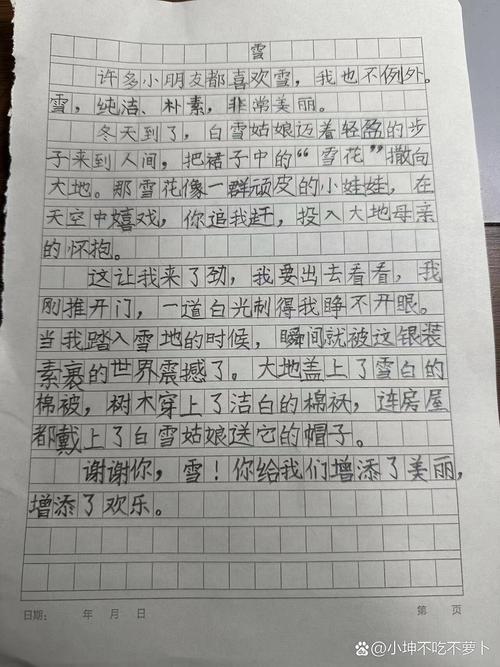 雪
许多小朋友都喜欢雪，我也不例外。
雪，纯洁、朴素，非常美丽。
冬天到了，白雪姑娘迈着轻盈的步
子来到人间，把裙子中的“雪花”撒向
大地。那雪花像一群顽皮的小娃娃，在
天空中嬉戏，你追我赶，投入大地母亲
的怀抱。
这让我来了劲，我要出去看看，我
刚推开门，一道白光刺得我睁不开眼。
当我踏入雪地的时候，瞬间就被这银装
素裹的世界震撼了。大地盖上了雪白的
棉被，树木穿上了洁白的棉袄，连房屋
都戴上了白雪姑娘送它的帽子。
谢谢你，雪！你给我们增添了美丽，
增添了欢乐。
日期： 年 月 日 第 页
@小坤不吃不萝卜